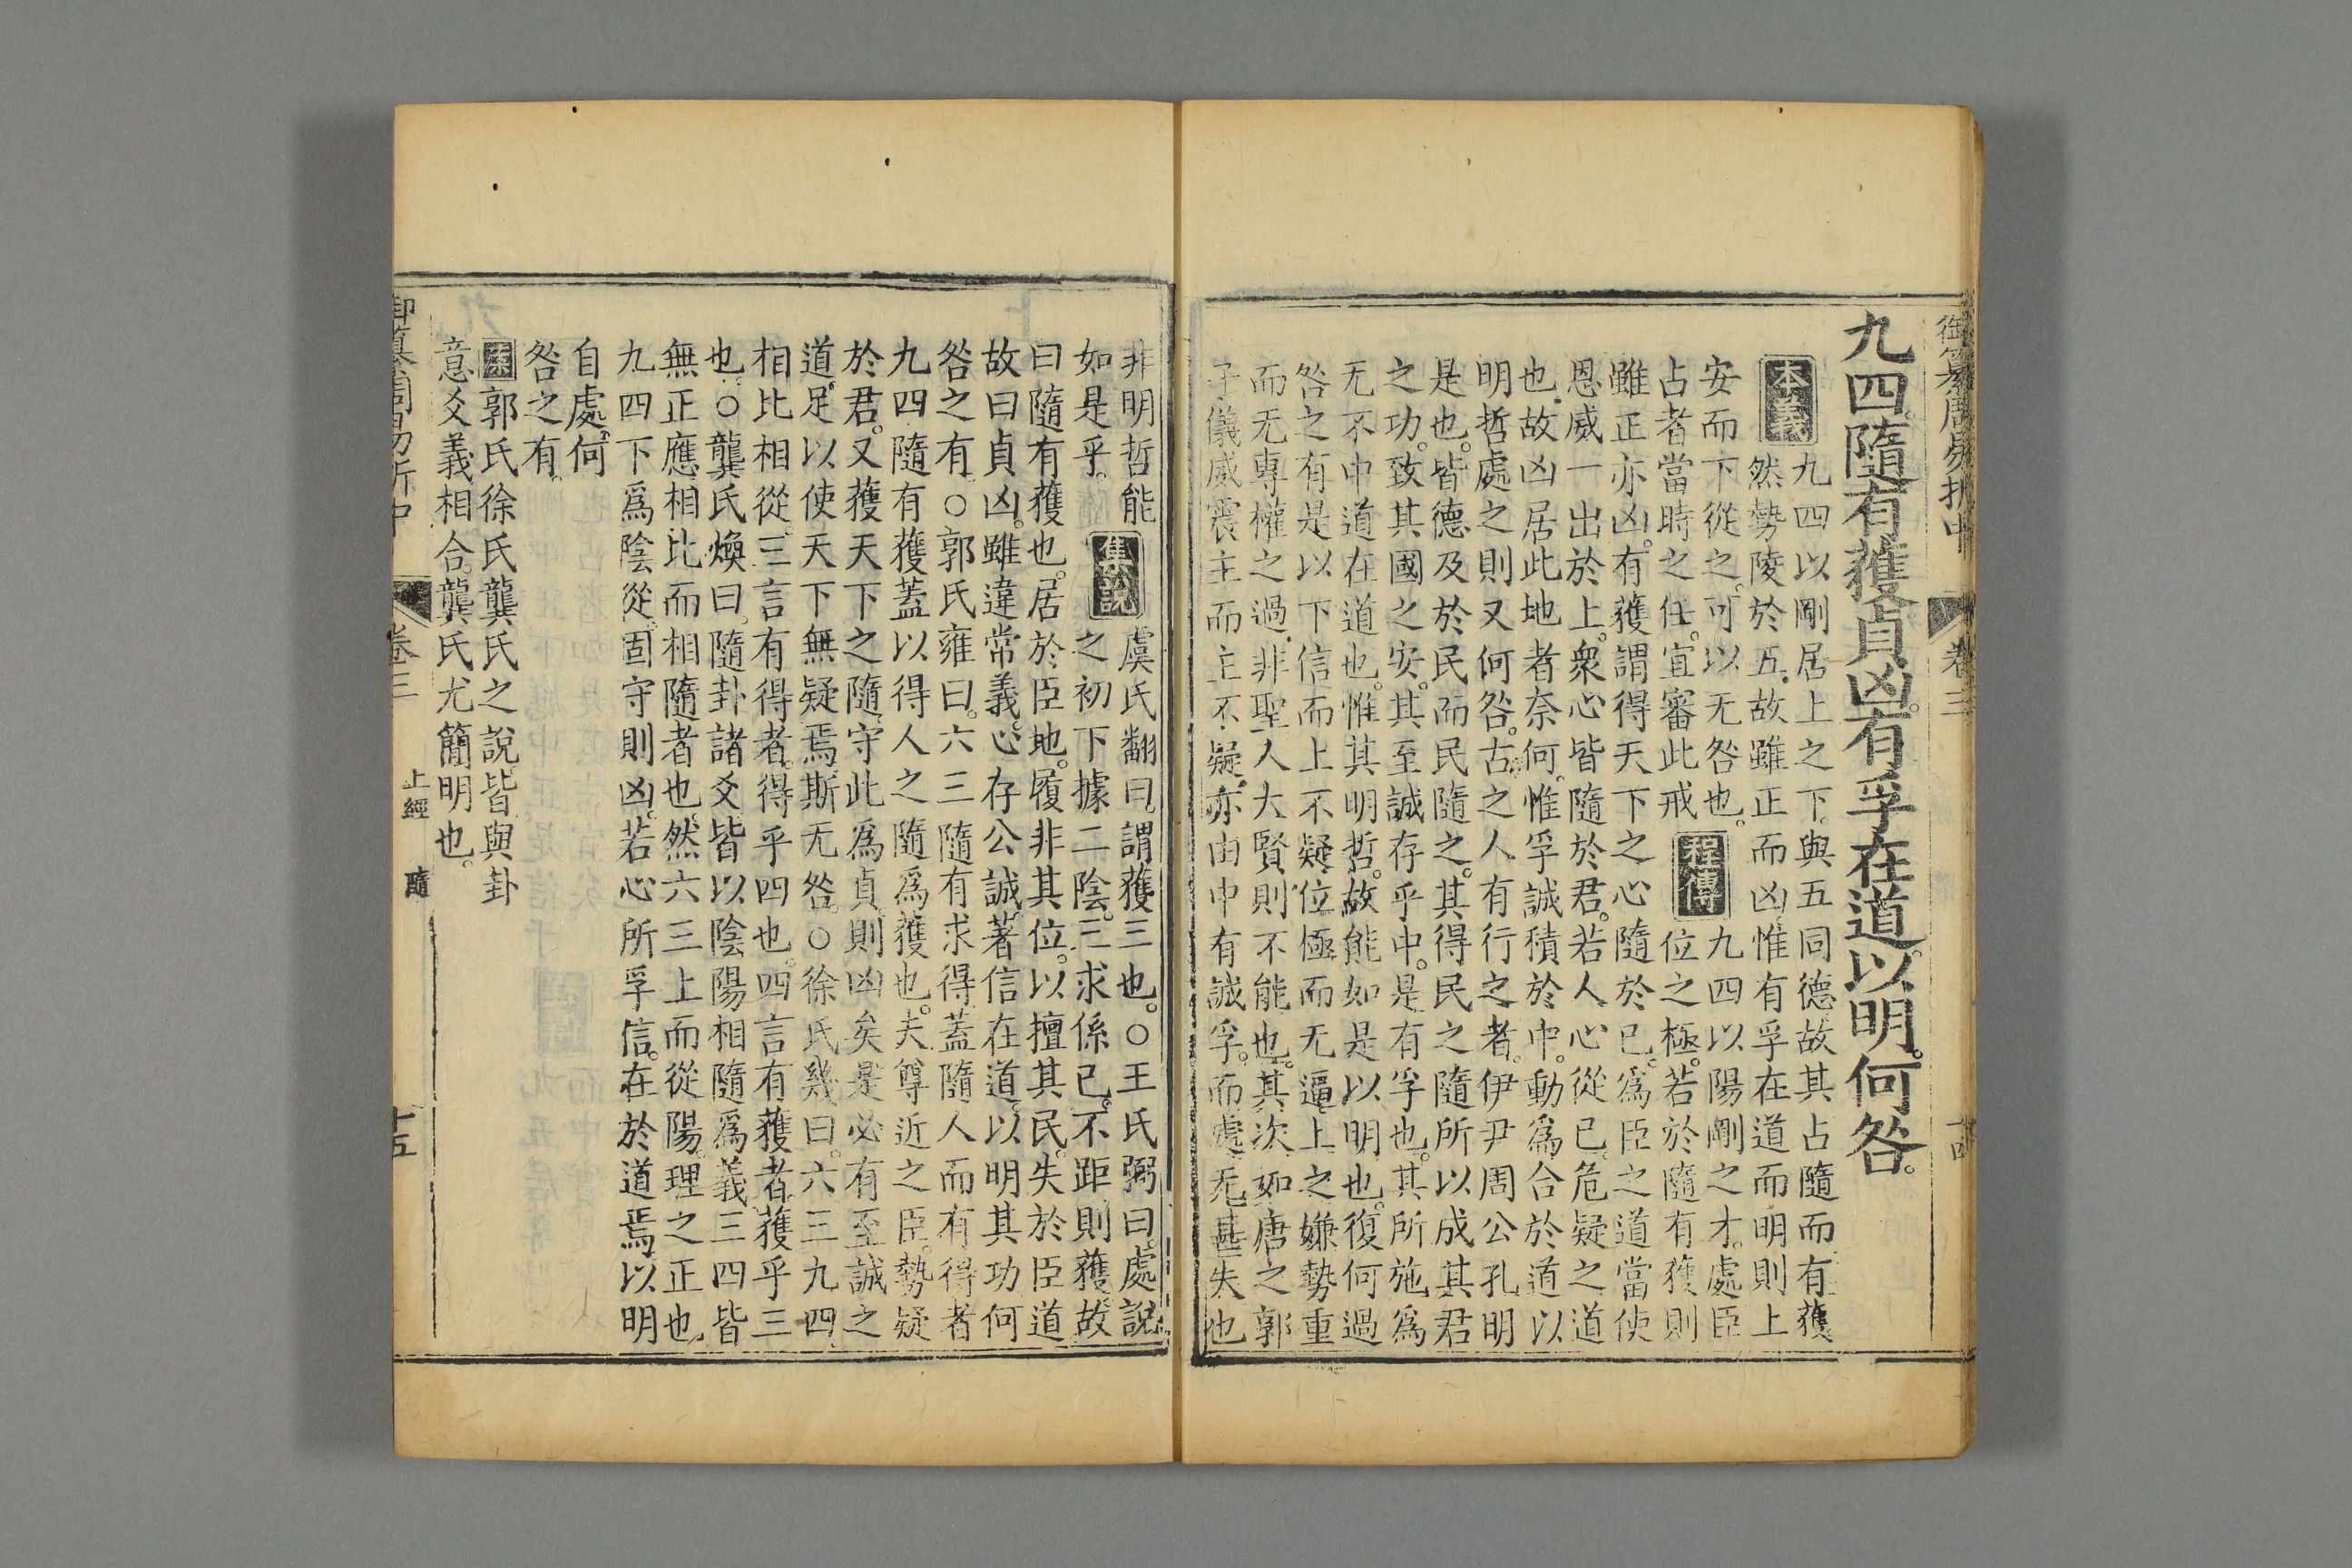 御纂周易折中 卷三 十四
九四。隨有獲。貞凶。有孚在道。以明。何咎。
本義 九四以剛居上之下。與五同德。故其占隨而有獲。
然勢陵於五。故雖正而凶。惟有孚在道而明。則上
安而下從之。可以无咎也。 程傳 九四以陽剛之才。處臣
占者當時之任。宜審此戒 位之極。若於隨有獲。則
雖正亦凶。有獲。謂得天下之心隨於己。爲臣之道。當使
恩威一出於上。衆心皆隨於君。若人心從己。危疑之道
也。故凶。居此地者奈何。惟孚誠積於中。動爲合於道。以
明哲處之。則又何咎。古之人有行之者。伊尹周公孔明
是也。皆德及於民。而民隨之。其得民之隨。所以成其君
之功。致其國之安。其至誠存乎中。是有孚也。其所施爲
无不中道。在道也。惟其明哲。故能如是以明也。復何過
咎之有。是以下信而上不疑。位極而无逼上之嫌。勢重
而无專權之過。非聖人大賢。則不能也。其次如唐之郭
子儀。威震主而主不疑。亦由中有誠孚。而處无甚失也。
非明哲能 集說 虞氏翻曰。謂獲三也。○王氏弼曰。處說
如是乎。 之初下據二陰。三求係己。不距則獲。故
曰隨有獲也。居於臣地。履非其位。以擅其民。失於臣道。
故曰貞凶。雖違常義。心存公誠。著信在道。以明其功。何
咎之有。○郭氏雍曰。六三隨有求得。蓋隨人而有得者。
九四隨有獲。蓋以得人之隨爲獲也。夫尊近之臣。勢疑
於君。又獲天下之隨。守此爲貞。則凶矣。是必有至誠之
道。足以使天下無疑焉。斯无咎。○徐氏幾曰。六三九四。
相比相從。三言有得者。得乎四也。四言有獲者。獲乎三
也。○龔氏煥曰。隨卦諸爻。皆以陰陽相隨爲義。三四皆
無正應。相比而相隨者也。然六三上而從陽。理之正也。
九四下爲陰從。固守則凶。若心所孚信。在於道焉。以明
自處。何
咎之有。
案郭氏徐氏龔氏之說。皆與卦
意爻義相合。龔氏尤簡明也。
御纂周易折中 卷三 上經 隨 十五